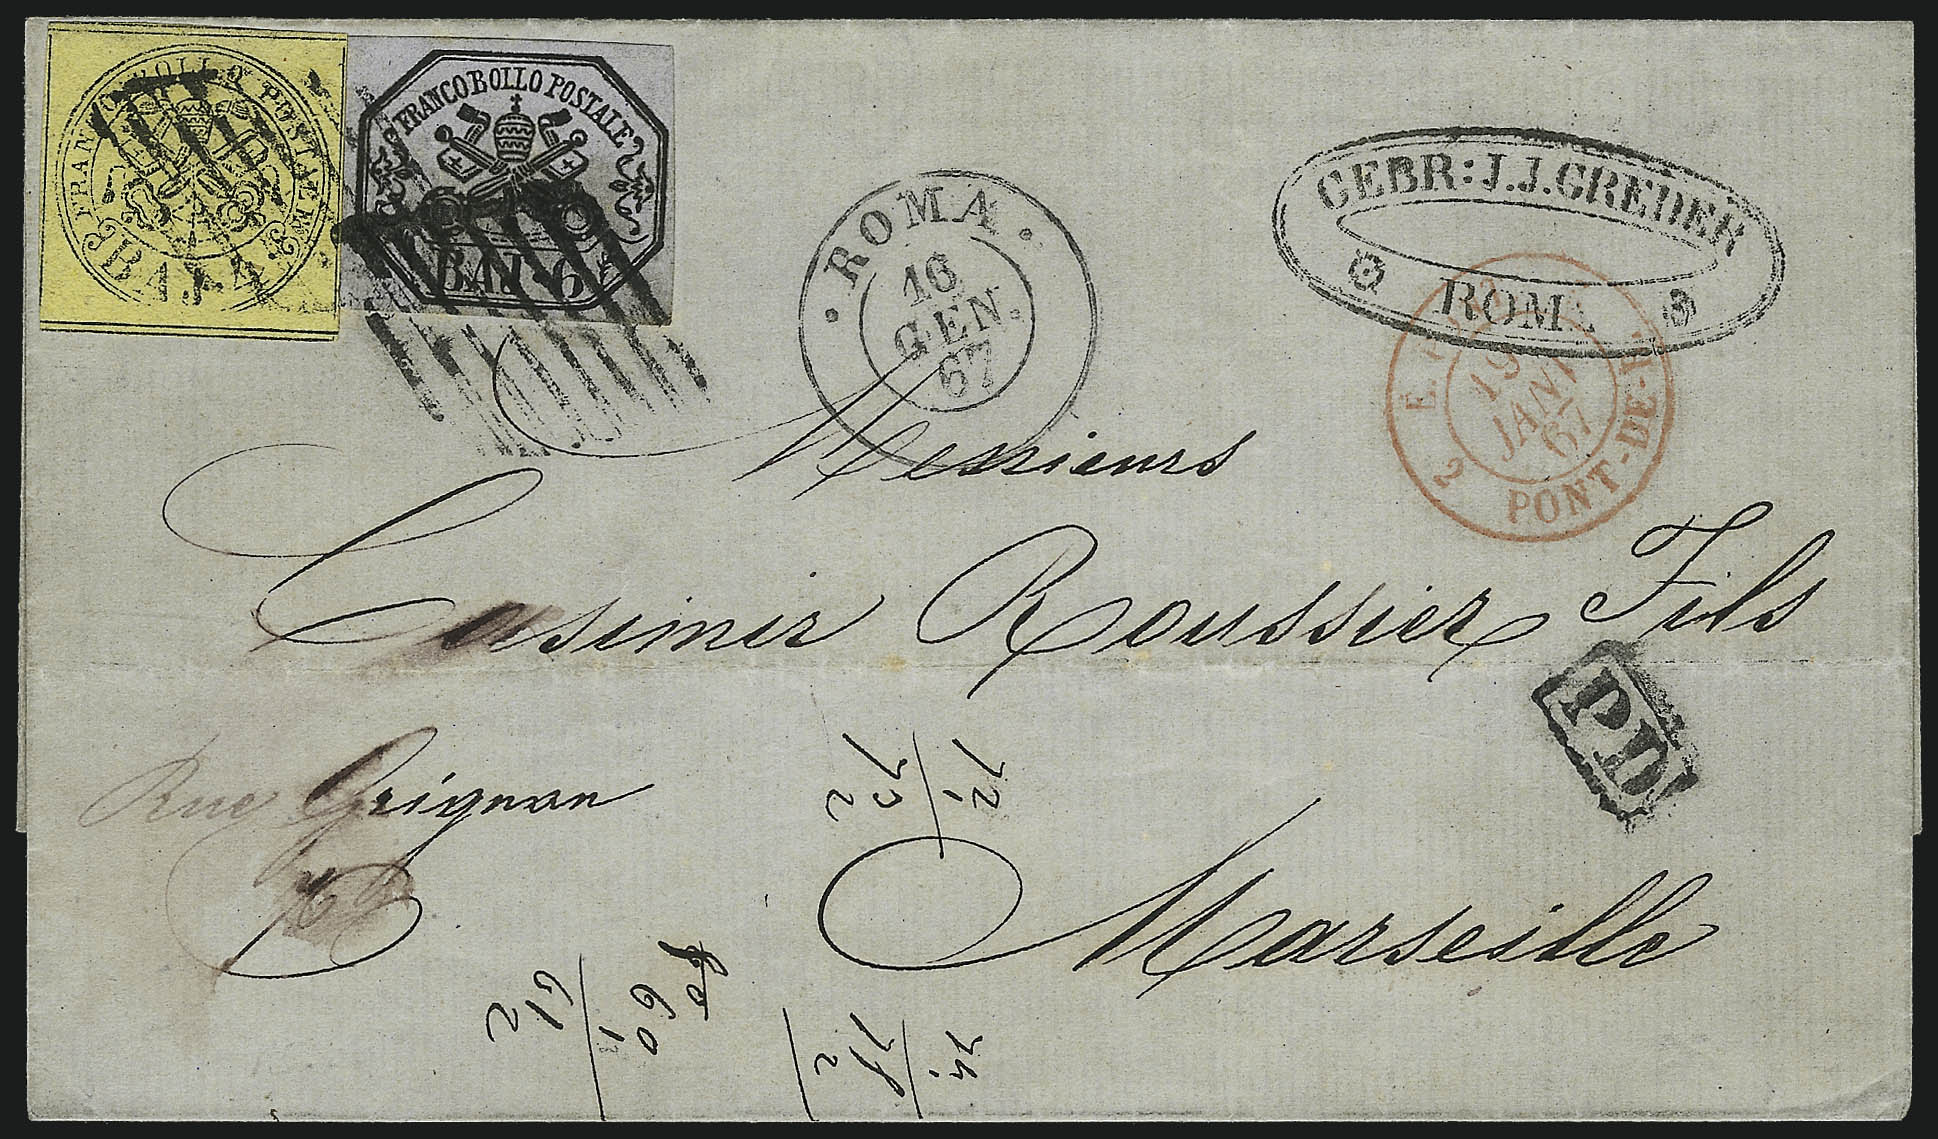 FRANCO BOLLO POSTALE
BAJ. 4
FRANCO BOLLO POSTALE
BAJ. 6
ROMA
16
GEN.
67
GEBR: J.J. GREDER
ROM
19
JANV
67
2
PONT-DE-
Messieurs
Casimir Roussier Fils
PD
Rue Grignan
Marseille
60
1
61 2